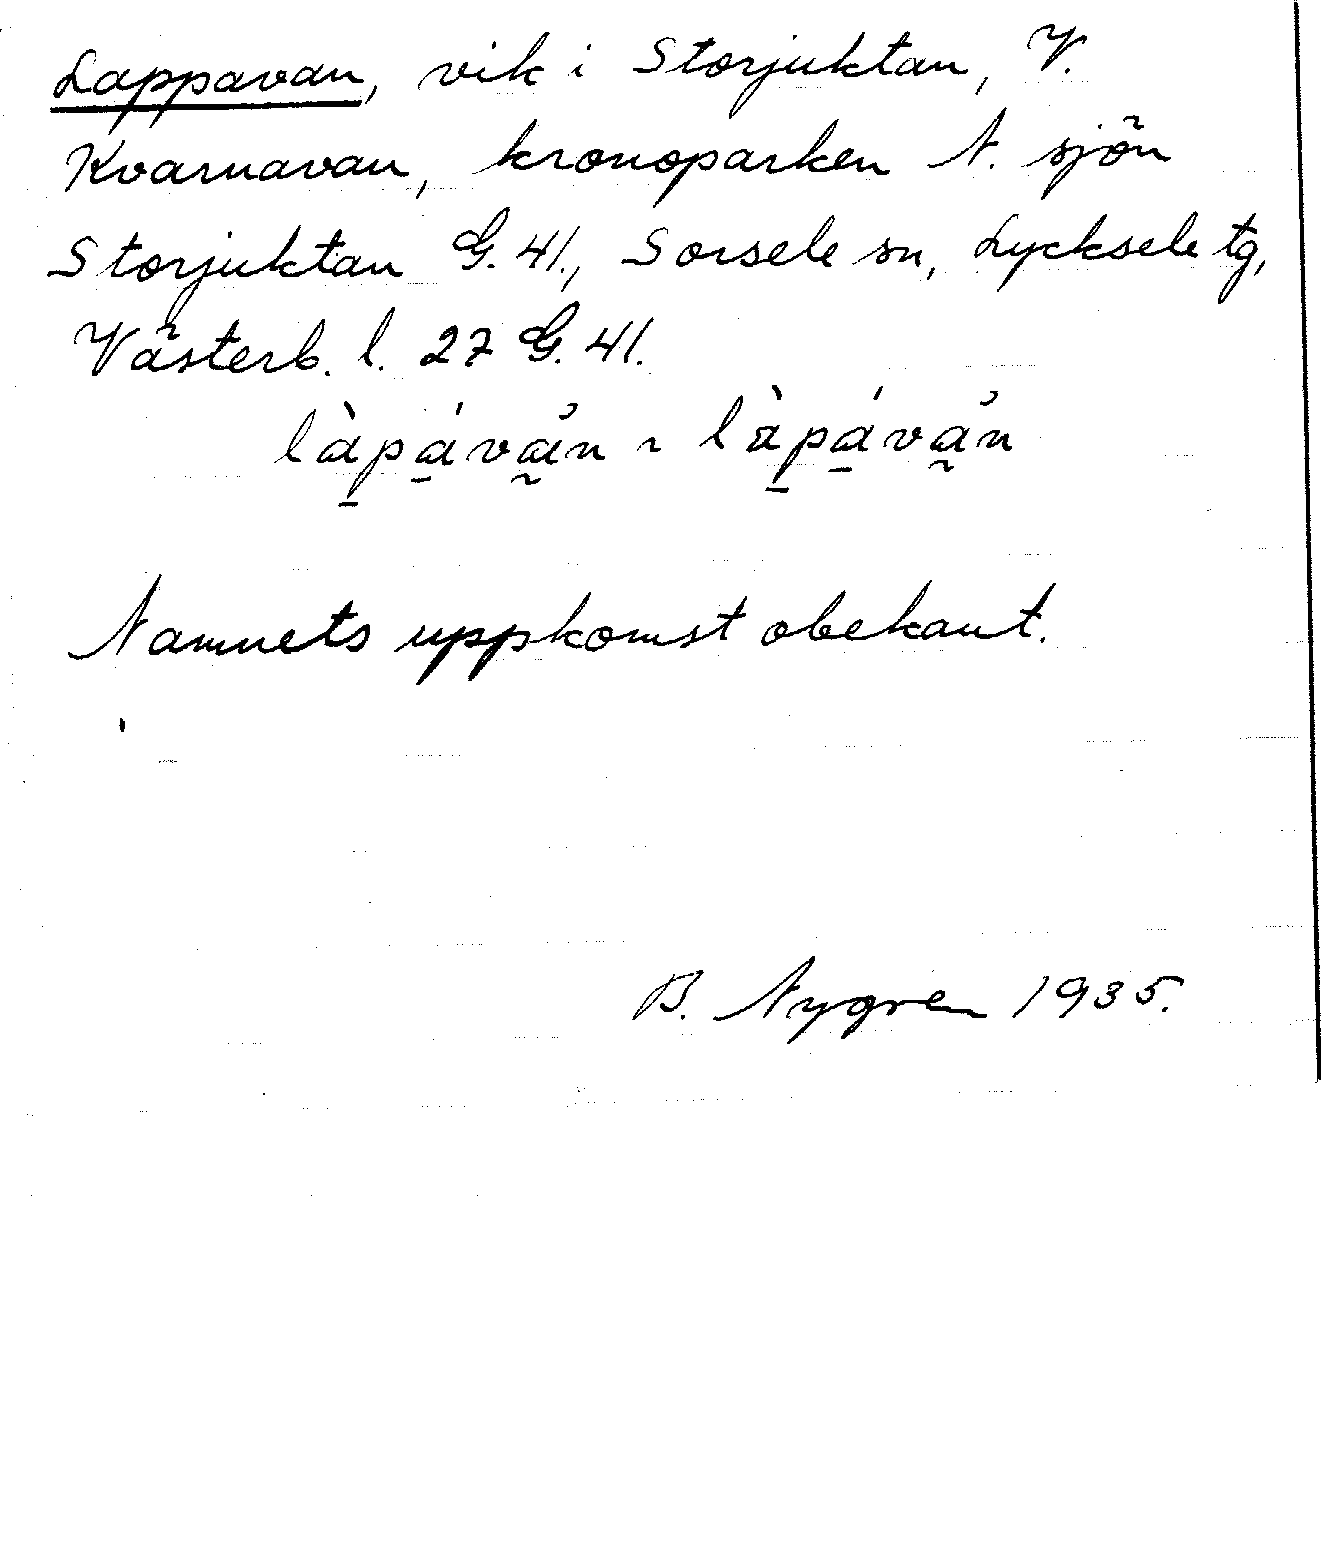 Lappavan, vik i Storjuktan, V.
Kvarnavan, kronoparken N. sjön
Storjuktan G. 41., Sorsele sn, Lycksele tg,
Västerb. l. 27 G. 41.
Namnets uppkomst obekant.
B. Nygren 1935.